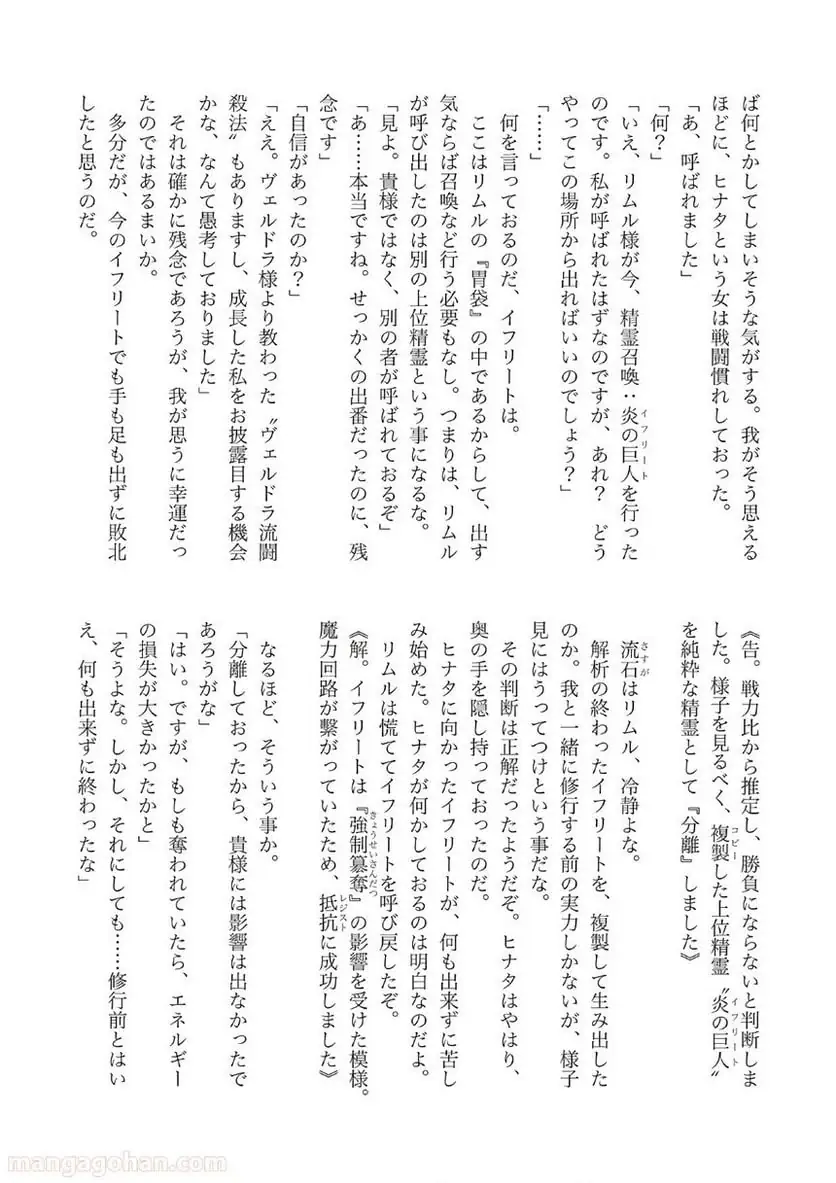 ば何とかしてしまいそうな気がする。我がそう思える
ほどに、ヒナタという女は戦闘慣れしておった。
「あ、呼ばれました」
「何？」
「いえ、リムル様が今、精霊召喚：炎の巨人を行った
イフリート
のです。私が呼ばれたはずなのですが、あれ？　どう
やってこの場所から出ればいいのでしょう？」
「……」
何を言っておるのだ、イフリートは。
ここはリムルの『胃袋』の中であるからして、出す
気ならば召喚など行う必要もなし。つまりは、リムル
が呼び出したのは別の上位精霊という事になるな。
「見よ。貴様ではなく、別の者が呼ばれておるぞ」
「あ……本当ですね。せっかくの出番だったのに、残
念です」
「自信があったのか？」
「ええ。ヴェルドラ様より教わった〝ヴェルドラ流闘
殺法〟もありますし、成長した私をお披露目する機会
かな、なんて愚考しておりました」
それは確かに残念であろうが、我が思うに幸運だっ
たのではあるまいか。
多分だが、今のイフリートでも手も足も出ずに敗北
したと思うのだ。
《告。戦力比から推定し、勝負にならないと判断しま
した。様子を見るべく、複製した上位精霊〝炎の巨人〟
コピー
イフリート
を純粋な精霊として『分離』しました》
流石はリムル、冷静よな。
さすが
解析の終わったイフリートを、複製して生み出した
のか。我と一緒に修行する前の実力しかないが、様子
見にはうってつけという事だな。
その判断は正解だったようだぞ。ヒナタはやはり、
奥の手を隠し持っておったのだ。
ヒナタに向かったイフリートが、何も出来ずに苦し
み始めた。ヒナタが何かしておるのは明白なのだよ。
リムルは慌ててイフリートを呼び戻したぞ。
《解。イフリートは『強制簒奪』の影響を受けた模様。
きょうせいさんだつ
魔力回路が繋がっていたため、抵抗に成功しました》
レジスト
なるほど、そういう事か。
「分離しておったから、貴様には影響は出なかったで
あろうがな」
「はい。ですが、もしも奪われていたら、エネルギー
の損失が大きかったかと」
「そうよな。しかし、それにしても……修行前とはい
え、何も出来ずに終わったな」
mangagohan.com